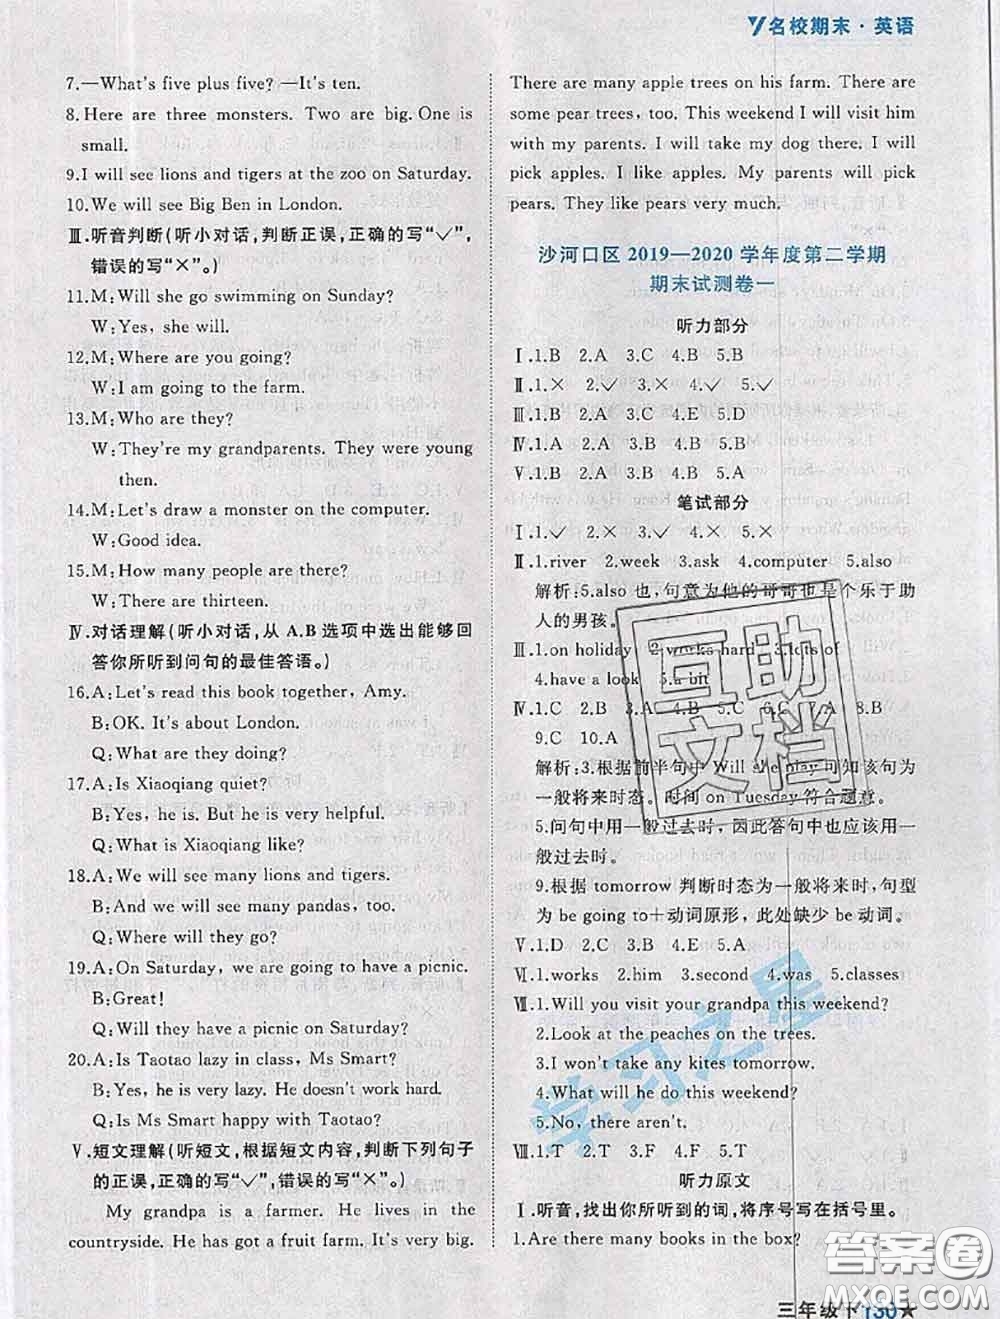 名校期末·英语
7.—What's five plus five? —It's ten.
8.Here are three monsters. Two are big. One is
small.
9.I will see lions and tigers at the zoo on Saturday.
10.We will see Big Ben in London.
Ⅲ.听音判断(听小对话,判断正误,正确的写“✓”,
错误的写“×”。)
11.M:Will she go swimming on Sunday?
W:Yes, she will.
12.M:Where are you going?
W:I am going to the farm.
13.M:Who are they?
W:They're my grandparents. They were young
then.
14.M:Let's draw a monster on the computer.
W:Good idea.
15.M:How many people are there?
W:There are thirteen.
Ⅳ.对话理解(听小对话,从 A.B 选项中选出能够回
答你所听到问句的最佳答语。)
16.A:Let's read this book together, Amy.
B:OK. It's about London.
Q:What are they doing?
17.A:Is Xiaoqiang quiet?
B:Yes, he is. But he is very helpful.
Q:What is Xiaoqiang like?
18.A:We will see many lions and tigers.
B:And we will see many pandas, too.
Q:Where will they go?
19.A:On Saturday, we are going to have a picnic.
B:Great!
Q:Will they have a picnic on Saturday?
20.A:Is Taotao lazy in class, Ms Smart?
B:Yes, he is very lazy. He doesn't work hard.
Q:Is Ms Smart happy with Taotao?
Ⅴ.短文理解(听短文,根据短文内容,判断下列句子
的正误,正确的写“✓”,错误的写“×”。)
My grandpa is a farmer. He lives in the
countryside. He has got a fruit farm. It's very big.
There are many apple trees on his farm. There are
some pear trees, too. This weekend I will visit him
with my parents. I will take my dog there. I will
pick apples. I like apples. My parents will pick
pears. They like pears very much.
沙河口区 2019—2020 学年度第二学期
期末试测卷一
听力部分
Ⅰ.1.B 2.A 3.C 4.B 5.B
Ⅱ.1.× 2.✓ 3.× 4.✓ 5.✓
Ⅲ.1.B 2.A 3.C 4.E 5.D
Ⅳ.1.A 2.A 3.B 4.B 5.B
Ⅴ.1.B 2.B 3.B 4.B 5.A
笔试部分
Ⅰ.1.✓ 2.× 3.✓ 4.× 5.×
Ⅱ.1.river 2.week 3.ask 4.computer 5.also
解析:5.also 也,句意为他的哥哥也是个乐于助
人的男孩。
Ⅲ.1.on holiday 2.works hard 3.lots of
4.have a look 5.a bit
Ⅳ.1.C 2.B 3.A 4.B 5.C 6.C 7.A 8.B
9.C 10.A
解析:3.根据前半句中 Will she play 可知该句为
一般将来时态。时间 on Tuesday 符合题意。
5.问句中用一般过去时,因此答句中也应该用一
般过去时。
9.根据 tomorrow 判断时态为一般将来时,句型
为 be going to+动词原形,此处缺少 be 动词。
Ⅴ.1.D 2.C 3.B 4.E 5.A
Ⅵ.1.works 2.made 3.second 4.was 5.classes
Ⅶ.1.Will you visit your grandpa this weekend?
2.Look at the peaches on the trees.
3.I won't take any kites tomorrow.
4.What will he do this weekend?
5.No, there aren't.
Ⅷ.1.T 2.T 3.F 4.F 5.T
听力原文
Ⅰ.听音,找出你所听到的词,将序号写在括号里。
1.Are there many books in the box?
三年级下 130★
互助
文档
学习之星
答案圈
MXQE.COM